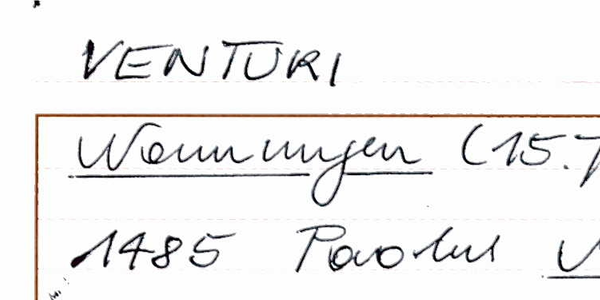 VENTURI
Wonnungen (15.
1485 Paolus